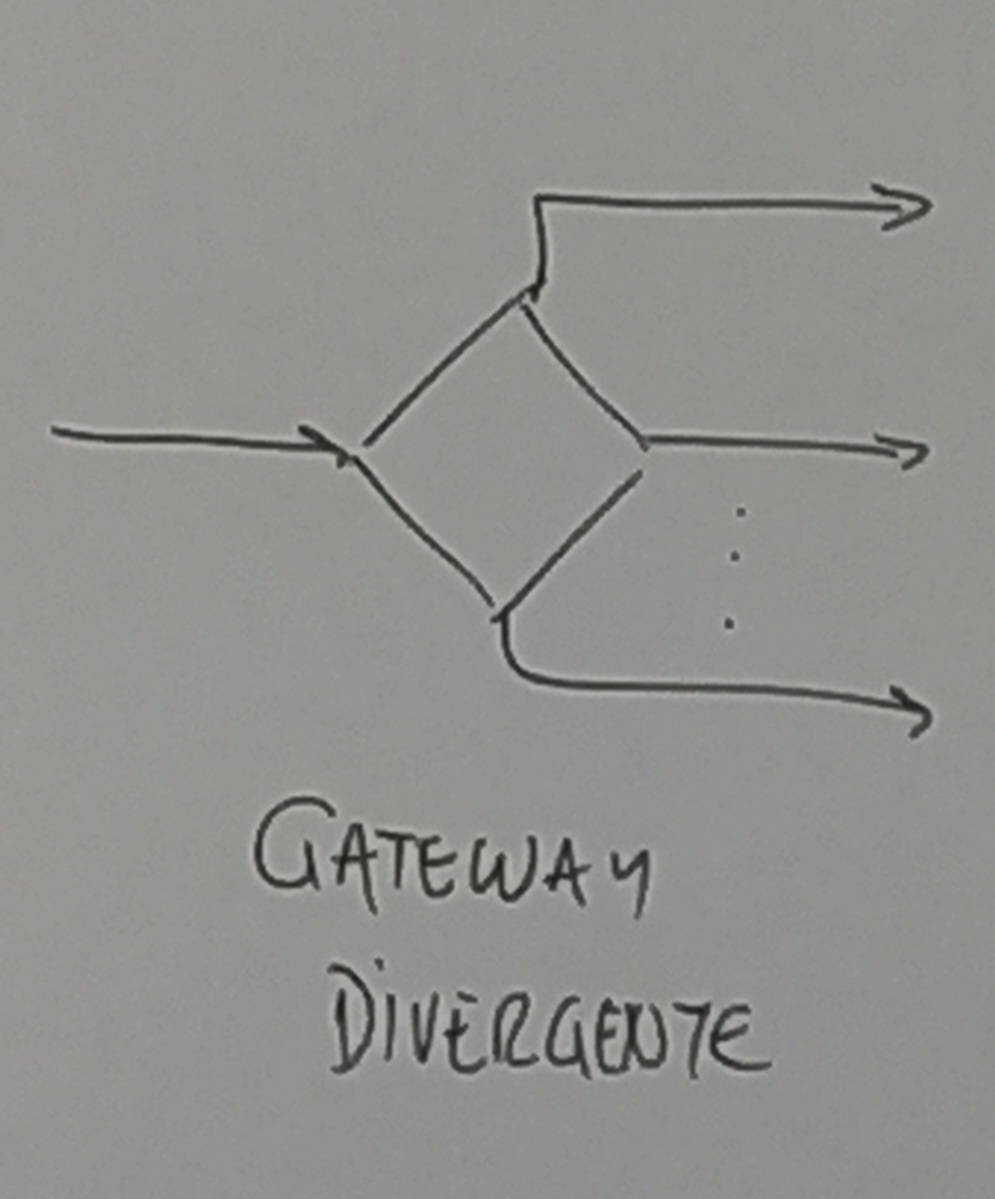 GATEWAY
DiVERGENTE